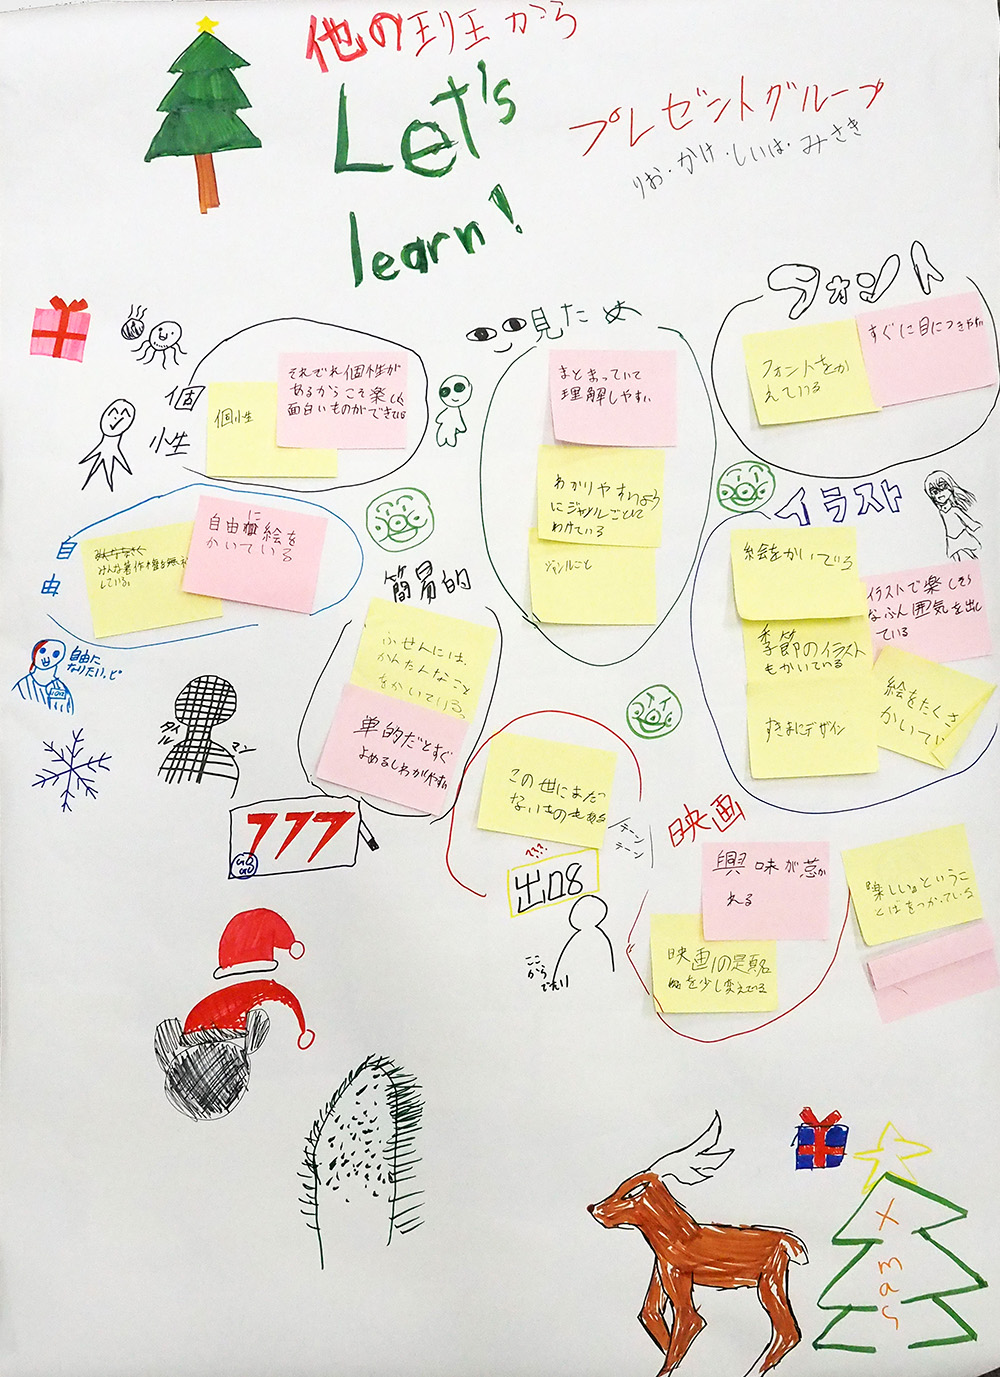 他の班から
Let's
learn!
プレゼントグループ
りお・かけ・しいは・みさき
個
性
個性
それぞれ個性が
あるからこそ楽しく
面白いものができている
見ため
まとまっていて
理解しやすい
わかりやすいよう
にジャンルごとに
わけている
ジャンルごと
フォント
フォントをか
えている
すぐに目につきやすい
自
由
みんな著作権を無視
している。
自由に絵を
かいている
自由に
なりたいッピ
簡易的
ふせんには、
かんたんなこと
をかいている。
単的だとすぐ
よめるしわかりやすい
イラスト
絵をかいている
イラストで楽しそう
なふん囲気を出し
ている
季節のイラスト
もかいている
絵をたくさ
かいてい
すきまにデザイン
タイル
マン
777
この世にまだ
ないものもある
テーン
テーン
???
出口8
ここ
から
でたい
映画
興味が惹か
れる
映画の題名
を少し変えている
楽しい。というこ
とばをつかっている
X
m
a
s